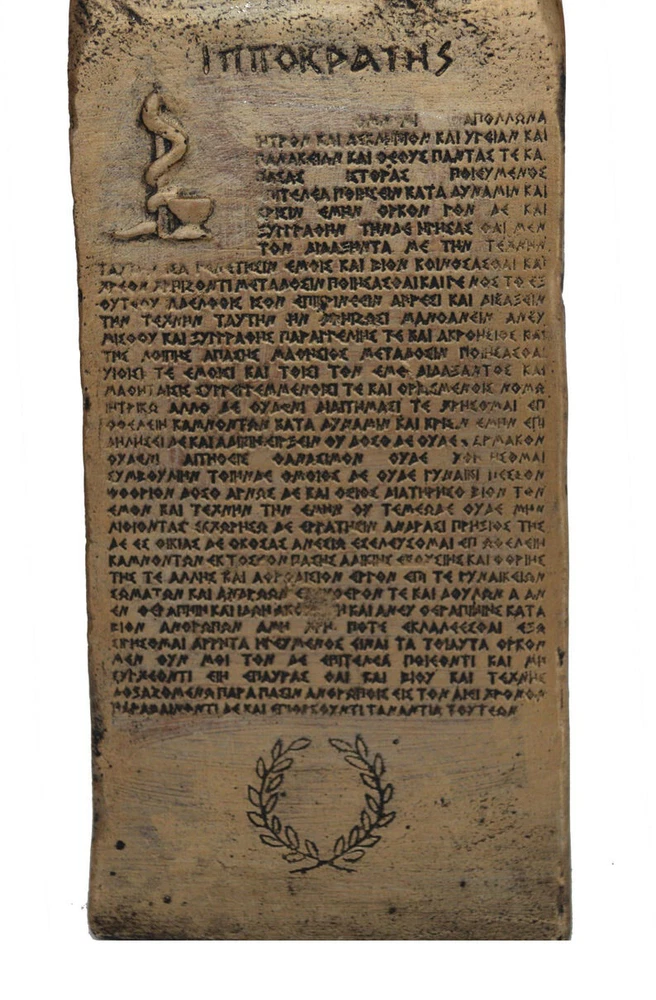 ΙΠΠΟΚΡΑΤΗΣ
ΑΠΟΛΛΩΝΑ
ΙΗΤΡΟΝ ΚΑΙ ΑΣΚΛΗΠΙΟΝ ΚΑΙ ΥΓΕΙΑΝ ΚΑΙ
ΠΑΝΑΚΕΙΑΝ ΚΑΙ ΘΕΟΥΣ ΠΑΝΤΑΣ ΤΕ ΚΑΙ
ΠΑΣΑΣ ΙΣΤΟΡΑΣ ΠΟΙΕΥΜΕΝΟΣ
ΕΠΙΤΕΛΕΑ ΠΟΙΗΣΕΙΝ ΚΑΤΑ ΔΥΝΑΜΙΝ ΚΑΙ
ΚΡΙΣΙΝ ΕΜΗΝ ΟΡΚΟΝ ΤΟΝ ΔΕ ΚΑΙ
ΞΥΓΓΡΑΦΗΝ ΤΗΝΔΕ ΗΓΗΣΑΣΘΑΙ ΜΕΝ
ΤΟΝ ΔΙΔΑΞΑΝΤΑ ΜΕ ΤΗΝ ΤΕΧΝΗΝ
ΓΕΝΕΤΗΣΙΝ ΕΜΟΙΣ ΚΑΙ ΒΙΟΝ ΚΟΙΝΩΣΑΣΘΑΙ ΚΑΙ
ΧΡΕΩΝ ΧΡΗΙΖΟΝΤΙ ΜΕΤΑΔΟΣΙΝ ΠΟΙΗΣΑΣΘΑΙ ΚΑΙ ΓΕΝΟΣ ΤΟ ΕΞ
ΙΣΟΝ ΕΠΙΚΡΙΝΕΕΙΝ ΑΡΡΕΣΙ ΚΑΙ ΔΙΔΑΞΕΙΝ
ΤΗΝ ΤΕΧΝΗΝ ΤΑΥΤΗΝ ΗΝ ΧΡΗΙΖΩΣΙ ΜΑΝΘΑΝΕΙΝ ΑΝΕΥ
ΜΙΣΘΟΥ ΚΑΙ ΞΥΓΓΡΑΦΗΣ ΠΑΡΑΓΓΕΛΙΗΣ ΤΕ ΚΑΙ ΑΚΡΟΗΣΙΟΣ ΚΑΙ
ΤΗΣ ΛΟΙΠΗΣ ΑΠΑΣΗΣ ΜΑΘΗΣΙΟΣ ΜΕΤΑΔΟΣΙΝ ΠΟΙΗΣΑΣΘΑΙ
ΥΙΟΙΣΙ ΤΕ ΕΜΟΙΣΙ ΚΑΙ ΤΟΙΣΙ ΤΟΝ ΕΜΕ ΔΙΔΑΞΑΝΤΟΣ ΚΑΙ
ΜΑΘΗΤΑΙΣΙ ΣΥΓΓΕΓΡΑΜΜΕΝΟΙΣΙ ΤΕ ΚΑΙ ΩΡΚΙΣΜΕΝΟΙΣ ΝΟΜΩ
ΙΗΤΡΙΚΩ ΑΛΛΩ ΔΕ ΟΥΔΕΝΙ ΔΙΑΙΤΗΜΑΣΙ ΤΕ ΧΡΗΣΟΜΑΙ ΕΠ
ΩΦΕΛΕΙΗ ΚΑΜΝΟΝΤΩΝ ΚΑΤΑ ΔΥΝΑΜΙΝ ΚΑΙ ΚΡΙΣΙΝ ΕΜΗΝ ΕΠΙ
ΔΗΛΗΣΕΙ ΔΕ ΚΑΙ ΑΔΙΚΙΗ ΕΙΡΞΕΙΝ ΟΥ ΔΩΣΩ ΔΕ ΟΥΔΕ ΦΑΡΜΑΚΟΝ
ΟΥΔΕΝΙ ΑΙΤΗΘΕΙΣ ΘΑΝΑΣΙΜΟΝ ΟΥΔΕ
ΣΥΜΒΟΥΛΙΗΝ ΤΟΙΗΝΔΕ ΟΜΟΙΩΣ ΔΕ ΟΥΔΕ ΓΥΝΑΙΚΙ ΠΕΣΣΟΝ
ΦΘΟΡΙΟΝ ΔΩΣΩ ΑΓΝΩΣ ΔΕ ΚΑΙ ΟΣΙΩΣ ΔΙΑΤΗΡΗΣΩ ΒΙΟΝ ΤΟΝ
ΕΜΟΝ ΚΑΙ ΤΕΧΝΗΝ ΤΗΝ ΕΜΗΝ ΟΥ ΤΕΜΕΩ ΔΕ ΟΥΔΕ ΜΗΝ
ΛΙΘΙΩΝΤΑΣ ΕΚΧΩΡΗΣΩ ΔΕ ΕΡΓΑΤΗΣΙΝ ΑΝΔΡΑΣΙ ΠΡΗΞΙΟΣ ΤΗΣ
ΔΕ ΕΣ ΟΙΚΙΑΣ ΔΕ ΟΚΟΣΑΣ ΑΝ ΕΣΙΩ ΕΣΕΛΕΥΣΟΜΑΙ ΕΠ ΩΦΕΛΕΙΗ
ΚΑΜΝΟΝΤΩΝ ΕΚΤΟΣ ΕΩΝ ΠΑΣΗΣ ΑΔΙΚΙΗΣ ΕΚΟΥΣΙΗΣ ΚΑΙ ΦΘΟΡΙΗΣ
ΤΗΣ ΤΕ ΑΛΛΗΣ ΚΑΙ ΑΦΡΟΔΙΣΙΩΝ ΕΡΓΩΝ ΕΠΙ ΤΕ ΓΥΝΑΙΚΕΙΩΝ
ΣΩΜΑΤΩΝ ΚΑΙ ΑΝΔΡΩΩΝ ΕΛΕΥΘΕΡΩΝ ΤΕ ΚΑΙ ΔΟΥΛΩΝ Α ΑΝ
ΕΝ ΘΕΡΑΠΗΙΗ ΚΑΙ ΙΔΩ Η ΚΑΙ ΑΝΕΥ ΘΕΡΑΠΗΙΗΣ ΚΑΤΑ
ΒΙΟΝ ΑΝΘΡΩΠΩΝ ΑΜΗ ΧΡΗ ΠΟΤΕ ΕΚΛΑΛΕΕΣΘΑΙ ΕΞΩ
ΣΙΓΗΣΟΜΑΙ ΑΡΡΗΤΑ ΗΓΕΥΜΕΝΟΣ ΕΙΝΑΙ ΤΑ ΤΟΙΑΥΤΑ ΟΡΚΟΝ
ΜΕΝ ΟΥΝ ΜΟΙ ΤΟΝ ΔΕ ΕΠΙΤΕΛΕΑ ΠΟΙΕΟΝΤΙ ΚΑΙ ΜΗ
ΣΥΓΧΕΟΝΤΙ ΕΙΗ ΕΠΑΥΡΑΣΘΑΙ ΚΑΙ ΒΙΟΥ ΚΑΙ ΤΕΧΝΗΣ
ΔΟΞΑΖΟΜΕΝΩ ΠΑΡΑ ΠΑΣΙΝ ΑΝΘΡΩΠΟΙΣ ΕΙΣ ΤΟΝ ΑΙΕΙ ΧΡΟΝΟΝ
ΠΑΡΑΒΑΙΝΟΝΤΙ ΔΕ ΚΑΙ ΕΠΙΟΡΚΟΥΝΤΙ ΤΑΝΑΝΤΙΑ ΤΟΥΤΕΩΝ